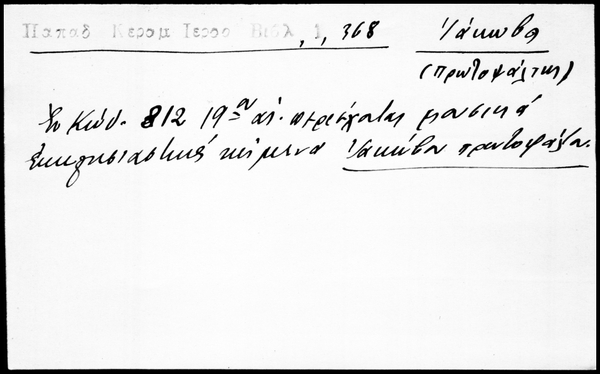 Παπαδ Κεραμ Ιεροσ Βιβλ 1, 1, 368 Ἰάκωβο
(πρωτοψάλτης)
Ἐν Κώδ. 812 19ου αἰ. περιέχεται μουσικά
ἐκκλησιαστικά κείμενα Ἰακώβου πρωτοψάλτου.